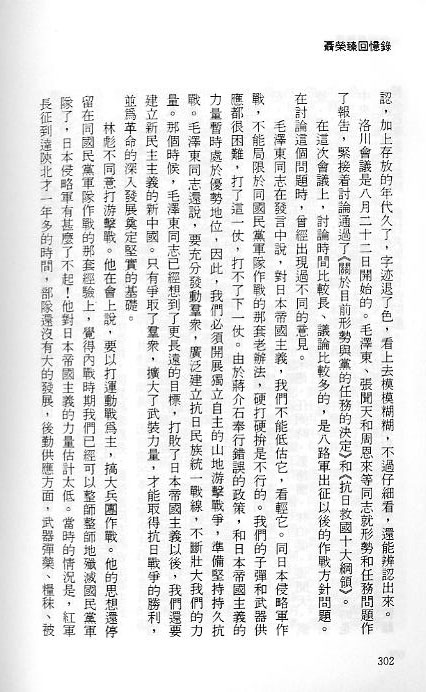 聶榮臻回憶錄
認，加上存放的年代久了，字迹退了色，看上去模模糊糊，不過仔細看，還能辨認出來。
洛川會議是八月二十二日開始的。毛澤東、張聞天和周恩來等同志就形勢和任務問題作
了報告，緊接着討論通過了《關於目前形勢與黨的任務的決定》和《抗日救國十大綱領》。
在這次會議上，討論時間比較長、議論比較多的，是八路軍出征以後的作戰方針問題。
在討論這個問題時，曾經出現過不同的意見。
毛澤東同志在發言中說，對日本帝國主義，我們不能低估它，看輕它。同日本侵略軍作
戰，不能局限於同國民黨軍隊作戰的那套老辦法，硬打硬拚是不行的。我們的子彈和武器供
應都很困難，打了這一仗，打不了下一仗。由於蔣介石奉行錯誤的政策，和日本帝國主義的
力量暫時處於優勢地位，因此，我們必須開展獨立自主的山地游擊戰爭，準備堅持持久抗
戰。毛澤東同志還說，要充分發動羣衆，廣泛建立抗日民族統一戰線，不斷壯大我們的力
量。那個時候，毛澤東同志已經想到了更長遠的目標，打敗了日本帝國主義以後，我們還要
建立新民主主義的新中國。只有爭取了羣衆，擴大了武裝力量，才能取得抗日戰爭的勝利，
並爲革命的深入發展奠定堅實的基礎。
林彪不同意打游擊戰。他在會上說，要以打運動戰爲主，搞大兵團作戰。他的思想還停
留在同國民黨軍隊作戰的那套經驗上，覺得內戰時期我們已經可以整師整師地殲滅國民黨軍
隊了，日本侵略軍有甚麼了不起！他對日本帝國主義的力量估計太低。當時的情況是，紅軍
長征到達陝北才一年多的時間，部隊還沒有大的發展，後勤供應方面，武器彈藥、糧秣、被
302